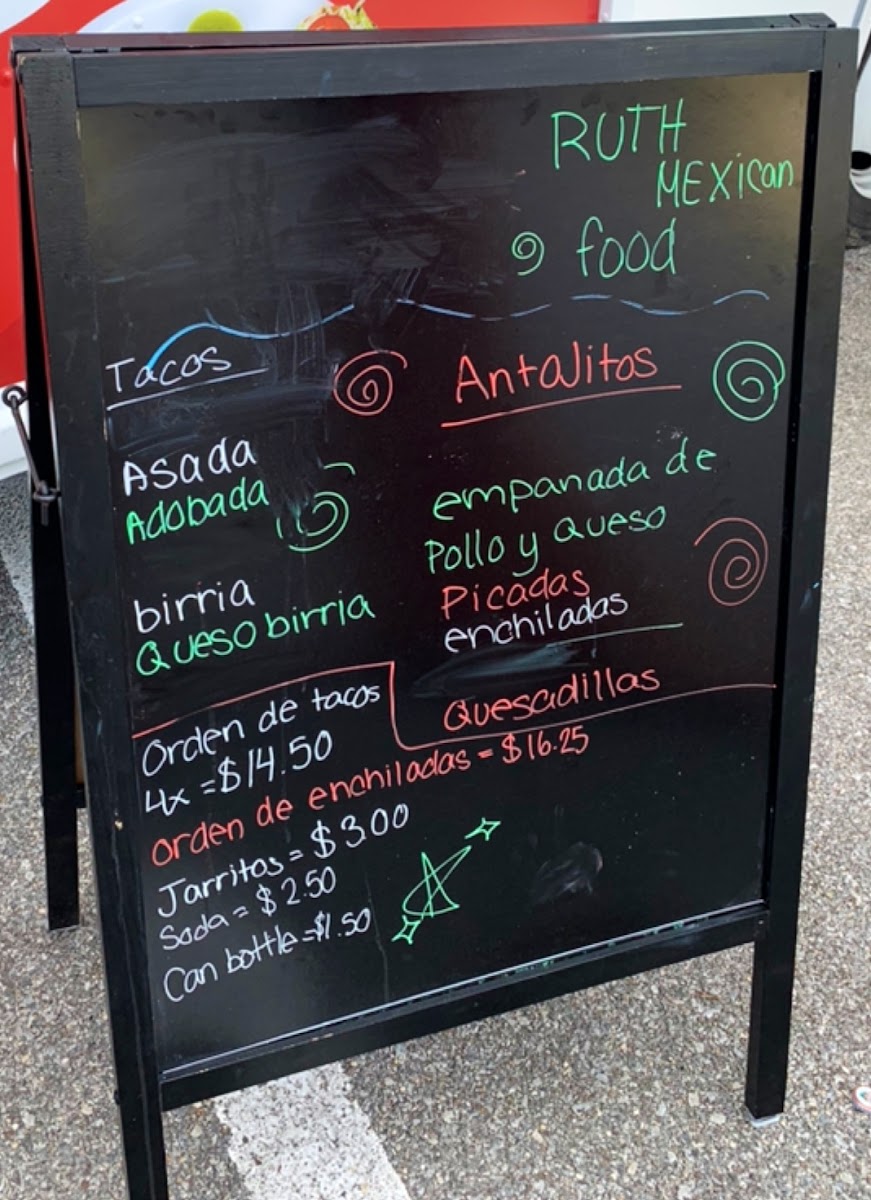 RUTH
MEXican
food
Tacos
Asada
Adobada
birria
Queso birria
AntoJitos
empanada de
Pollo y queso
Picadas
enchiladas
Quesadillas
Orden de tacos
4x = $14.50
orden de enchiladas = $16.25
Jarritos = $3.00
Soda = $2.50
Can bottle = $1.50